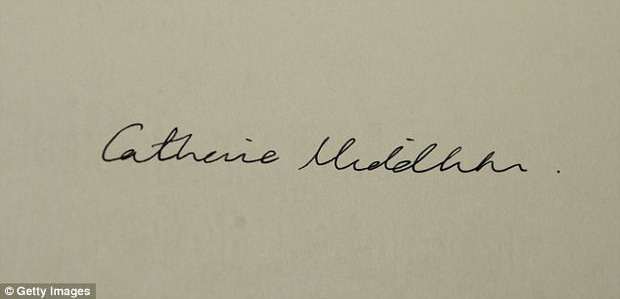 Catherine Middleton.
© Getty Images